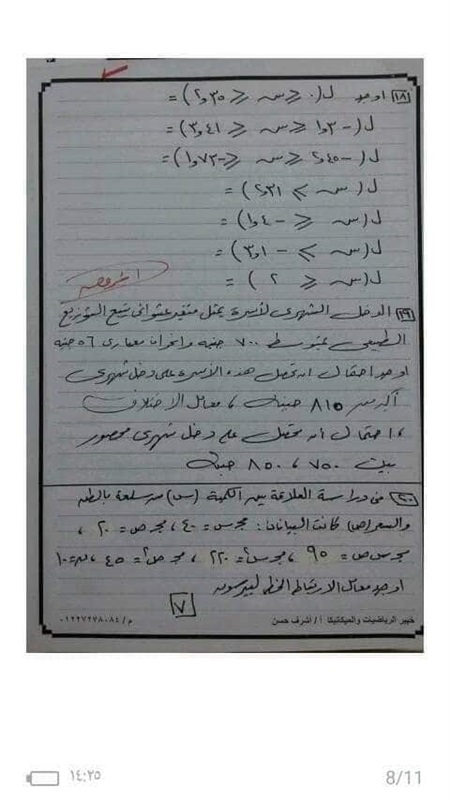 ١٨ اوجد ل(٠ ≤ س ≤ ٢٫٣٥) =
ل(-١٫٣ ≤ س ≤ ٣٫٤١) =
ل(-٢٫٤٥ ≤ س ≤ -١٫٧٣) =
ل(س ≥ ٢٫٣١) =
ل(س ≤ -١٫٤) =
ل(س ≥ -٣٫١) =
ل(س ≤ ٢) =
١٩ الدخل الشهرى لأسرة يمثل متغير عشوائى يتبع التوزيع
الطبيعى بمتوسط ٧٠٠ جنيه وانحراف معيارى ٥٦ جنيه
اوجد احتمال ان تحصل هذه الأسرة على دخل شهرى
أكبر من ٨١٥ جنيهاً ، معامل الاختلاف
، احتمال أن تحصل على دخل شهرى محصور
بين ٧٥٠ ، ٨٥٠ جنيهاً
٢٠ فى دراسة العلاقة بين الكمية (س) من سلعة بالطن
والسعر (ص) كانت البيانات: مجـ س = ٤٠ ، مجـ ص = ٢٠ ،
مجـ س ص = ٩٥ ، مجـ س٢ = ٢٢٠ ، مجـ ص٢ = ٤٥ ، ن = ١٠
اوجد معامل الارتباط الخطى لبيرسون
٧
خبير الرياضيات والميكانيكا أ / أشرف حسن
م / ٠١٢٢٧٢٧٨٠٨٤
١٤:٢٥
8/11